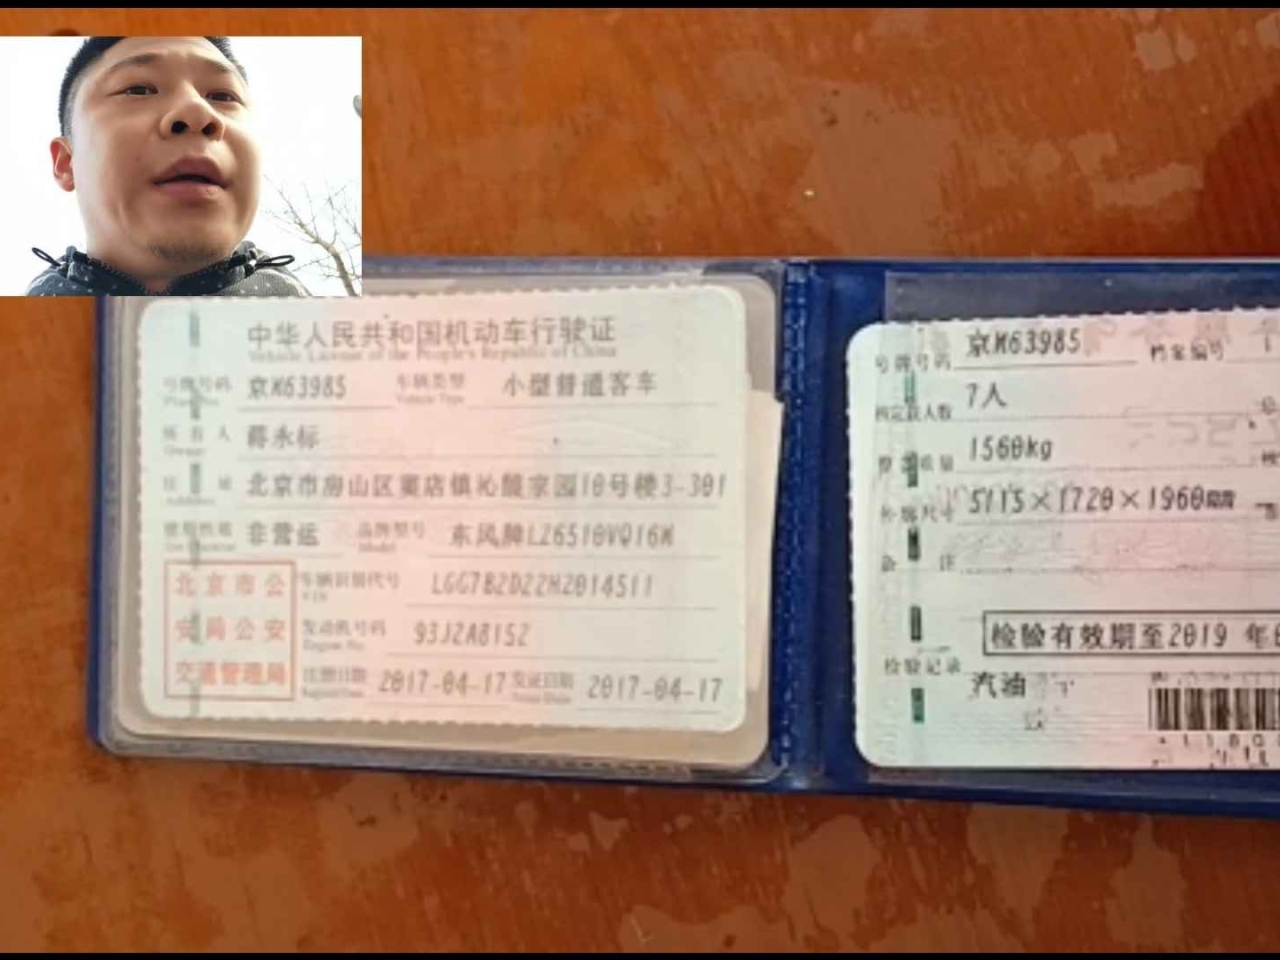 中华人民共和国机动车行驶证
Vehicle License of the People's Republic of China
号牌号码 京M63985 车辆类型 小型普通客车
Plate No. Vehicle Type
所有人 蒋永标
Owner
住址 北京市房山区窦店镇沁馥家园10号楼3-301
Address
使用性质 非营运 品牌型号 东风牌LZ6510VQ16M
Model
北京市公
安局公安
交通管理局
车辆识别代号 LGG7B2D22H2014511
VIN
发动机号码 93J2A8152
Engine No.
注册日期 2017-04-17 发证日期 2017-04-17
号牌号码 京M63985 档案编号 1
核定载人数 7人
整备质量 1560kg
外廓尺寸 5115×1720×1960
备注
检验有效期至2019 年
检验记录
汽油